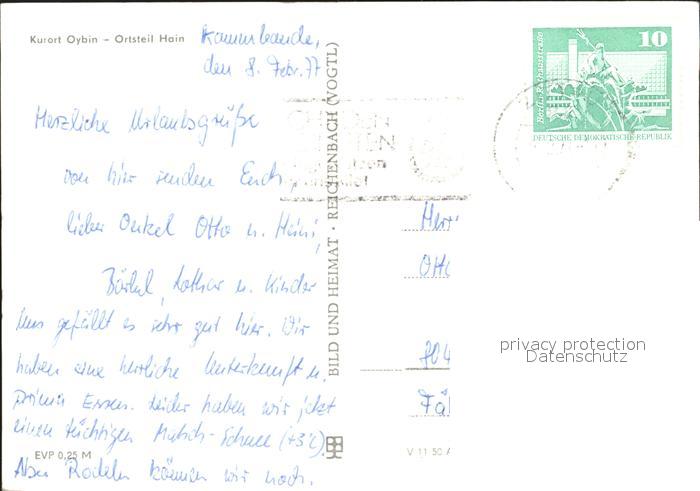 Kurort Oybin – Ortsteil Hain
den 8. Febr. 77
Herzliche Urlaubsgrüße
von hier senden Euch,
lieber Onkel Otto u. Heini,
Bärbel, Lothar u. Kinder
Uns gefällt es sehr gut hier. Wir
haben eine herrliche Unterkunft u.
prima Essen. Leider haben wir jetzt
einen tüchtigen Matsch-Schnee (+3°C).
Aber Rodeln können wir noch.
EVP 0,25 M
BILD UND HEIMAT · REICHENBACH (VOGTL)
10
Berlin, Rathausstraße
DEUTSCHE DEMOKRATISCHE REPUBLIK
Herr
Otto
804
privacy protection
Datenschutz
V 11 50 A